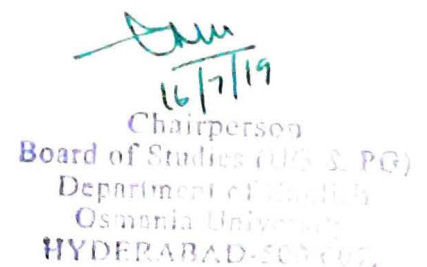 16/7/19
Chairperson
Board of Studies (UG & PG)
Department of English
Osmania University
HYDERABAD-500 007.